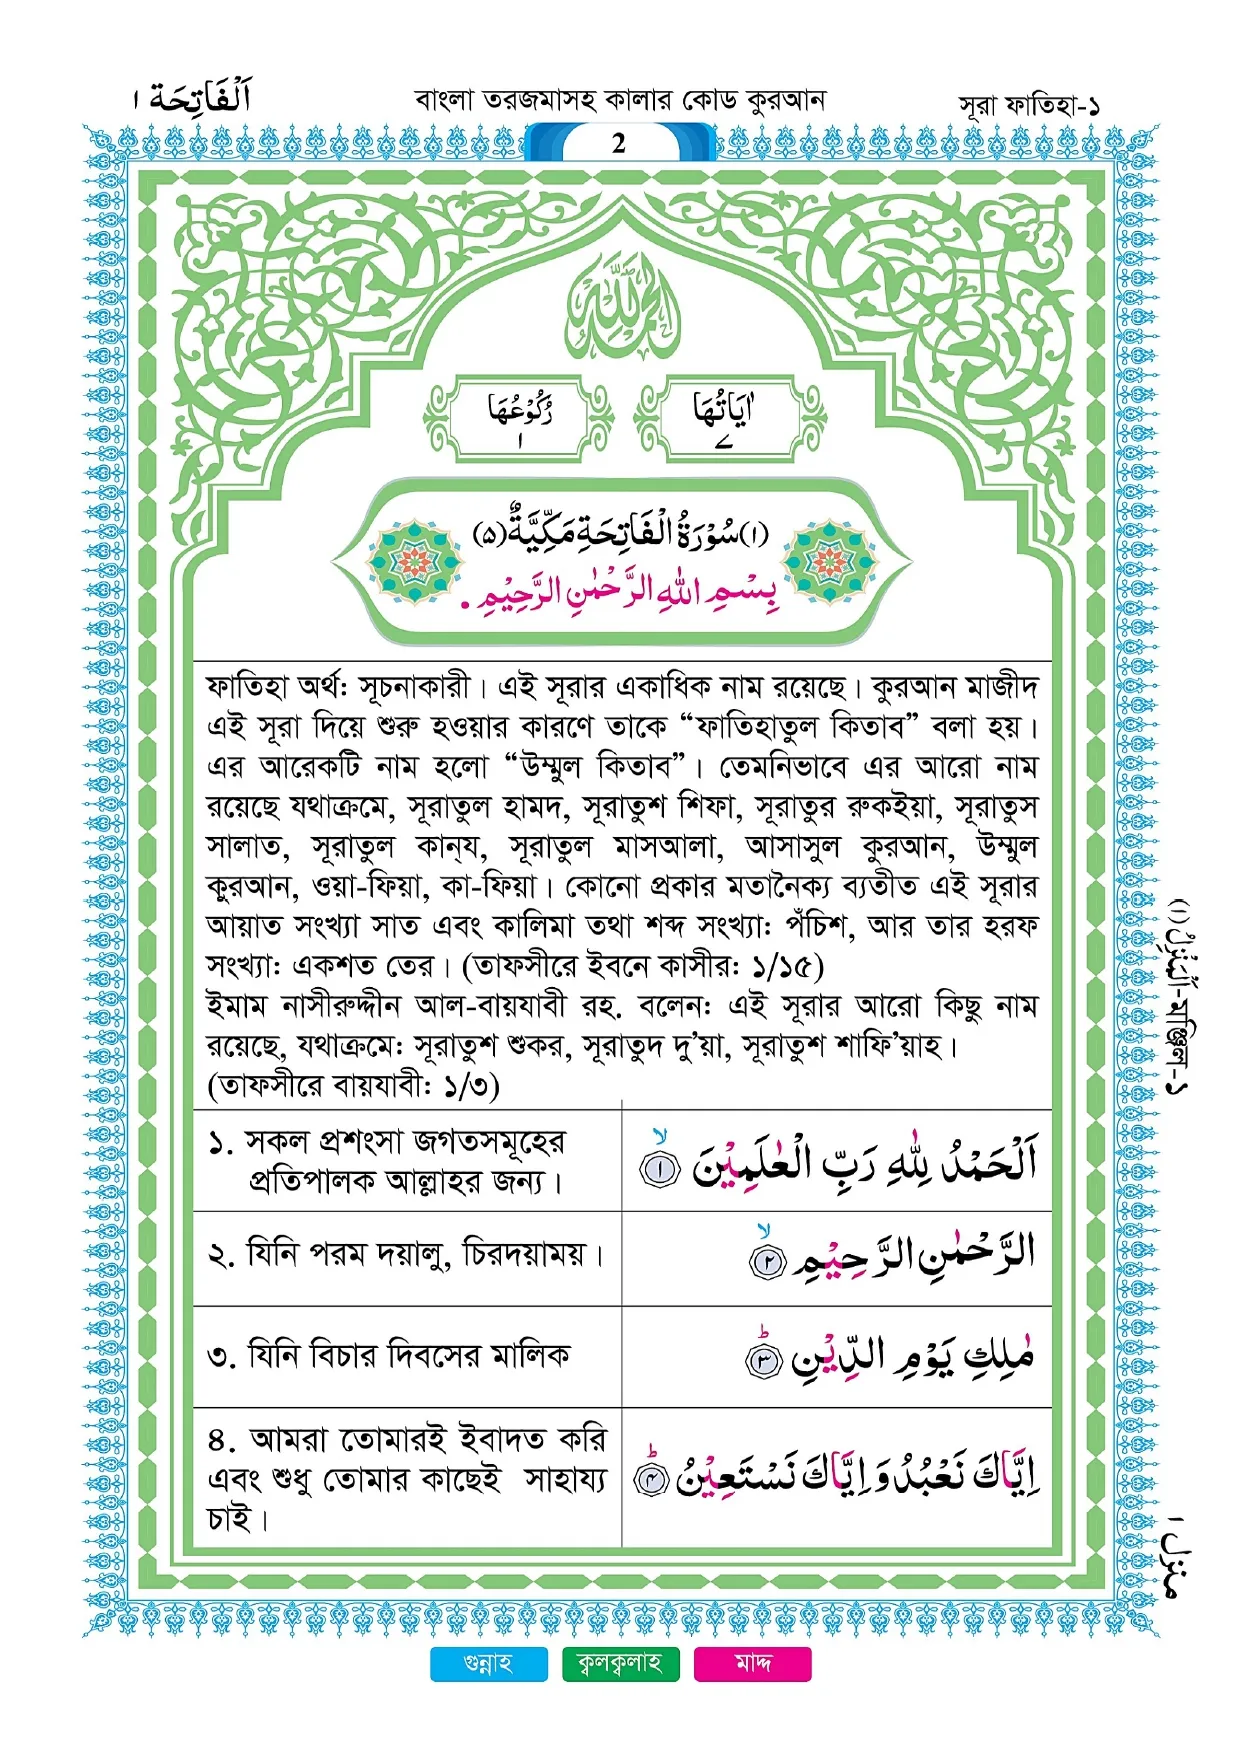 اَلْفَاتِحَة ١
বাংলা তরজমাসহ কালার কোড কুরআন
সূরা ফাতিহা-১
2
الحمد لله
رُكُوْعُهَا
١
اٰيَاتُهَا
٧
(١) سُوْرَةُ الْفَاتِحَةِ مَكِّيَّةٌ (٥)
بِسْمِ اللهِ الرَّحْمٰنِ الرَّحِيْمِ .
ফাতিহা অর্থ: সূচনাকারী। এই সূরার একাধিক নাম রয়েছে। কুরআন মাজীদ
এই সূরা দিয়ে শুরু হওয়ার কারণে তাকে “ফাতিহাতুল কিতাব” বলা হয়।
এর আরেকটি নাম হলো “উম্মুল কিতাব”। তেমনিভাবে এর আরো নাম
রয়েছে যথাক্রমে, সূরাতুল হামদ, সূরাতুশ শিফা, সূরাতুর রুকইয়া, সূরাতুস
সালাত, সূরাতুল কান্‌য, সূরাতুল মাসআলা, আসাসুল কুরআন, উম্মুল
কুরআন, ওয়া-ফিয়া, কা-ফিয়া। কোনো প্রকার মতানৈক্য ব্যতীত এই সূরার
আয়াত সংখ্যা সাত এবং কালিমা তথা শব্দ সংখ্যা: পঁচিশ, আর তার হরফ
সংখ্যা: একশত তের। (তাফসীরে ইবনে কাসীর: ১/১৫)
ইমাম নাসীরুদ্দীন আল-বায়যাবী রহ. বলেন: এই সূরার আরো কিছু নাম
রয়েছে, যথাক্রমে: সূরাতুশ শুকর, সূরাতুদ দু’য়া, সূরাতুশ শাফি’য়াহ।
(তাফসীরে বায়যাবী: ১/৩)
১. সকল প্রশংসা জগতসমূহের
প্রতিপালক আল্লাহর জন্য।
اَلْحَمْدُ لِلّٰهِ رَبِّ الْعٰلَمِيْنَ ۙ ١
২. যিনি পরম দয়ালু, চিরদয়াময়।
الرَّحْمٰنِ الرَّحِيْمِ ۙ ٢
৩. যিনি বিচার দিবসের মালিক
مٰلِكِ يَوْمِ الدِّيْنِ ؕ ٣
৪. আমরা তোমারই ইবাদত করি
এবং শুধু তোমার কাছেই সাহায্য
চাই।
اِيَّاكَ نَعْبُدُ وَ اِيَّاكَ نَسْتَعِيْنُ ؕ ٤
اَلْمَنْزِلُ (١)-মঞ্জিল-১
منزل ١
গুন্নাহ
ক্বলক্বলাহ
মাদ্দ